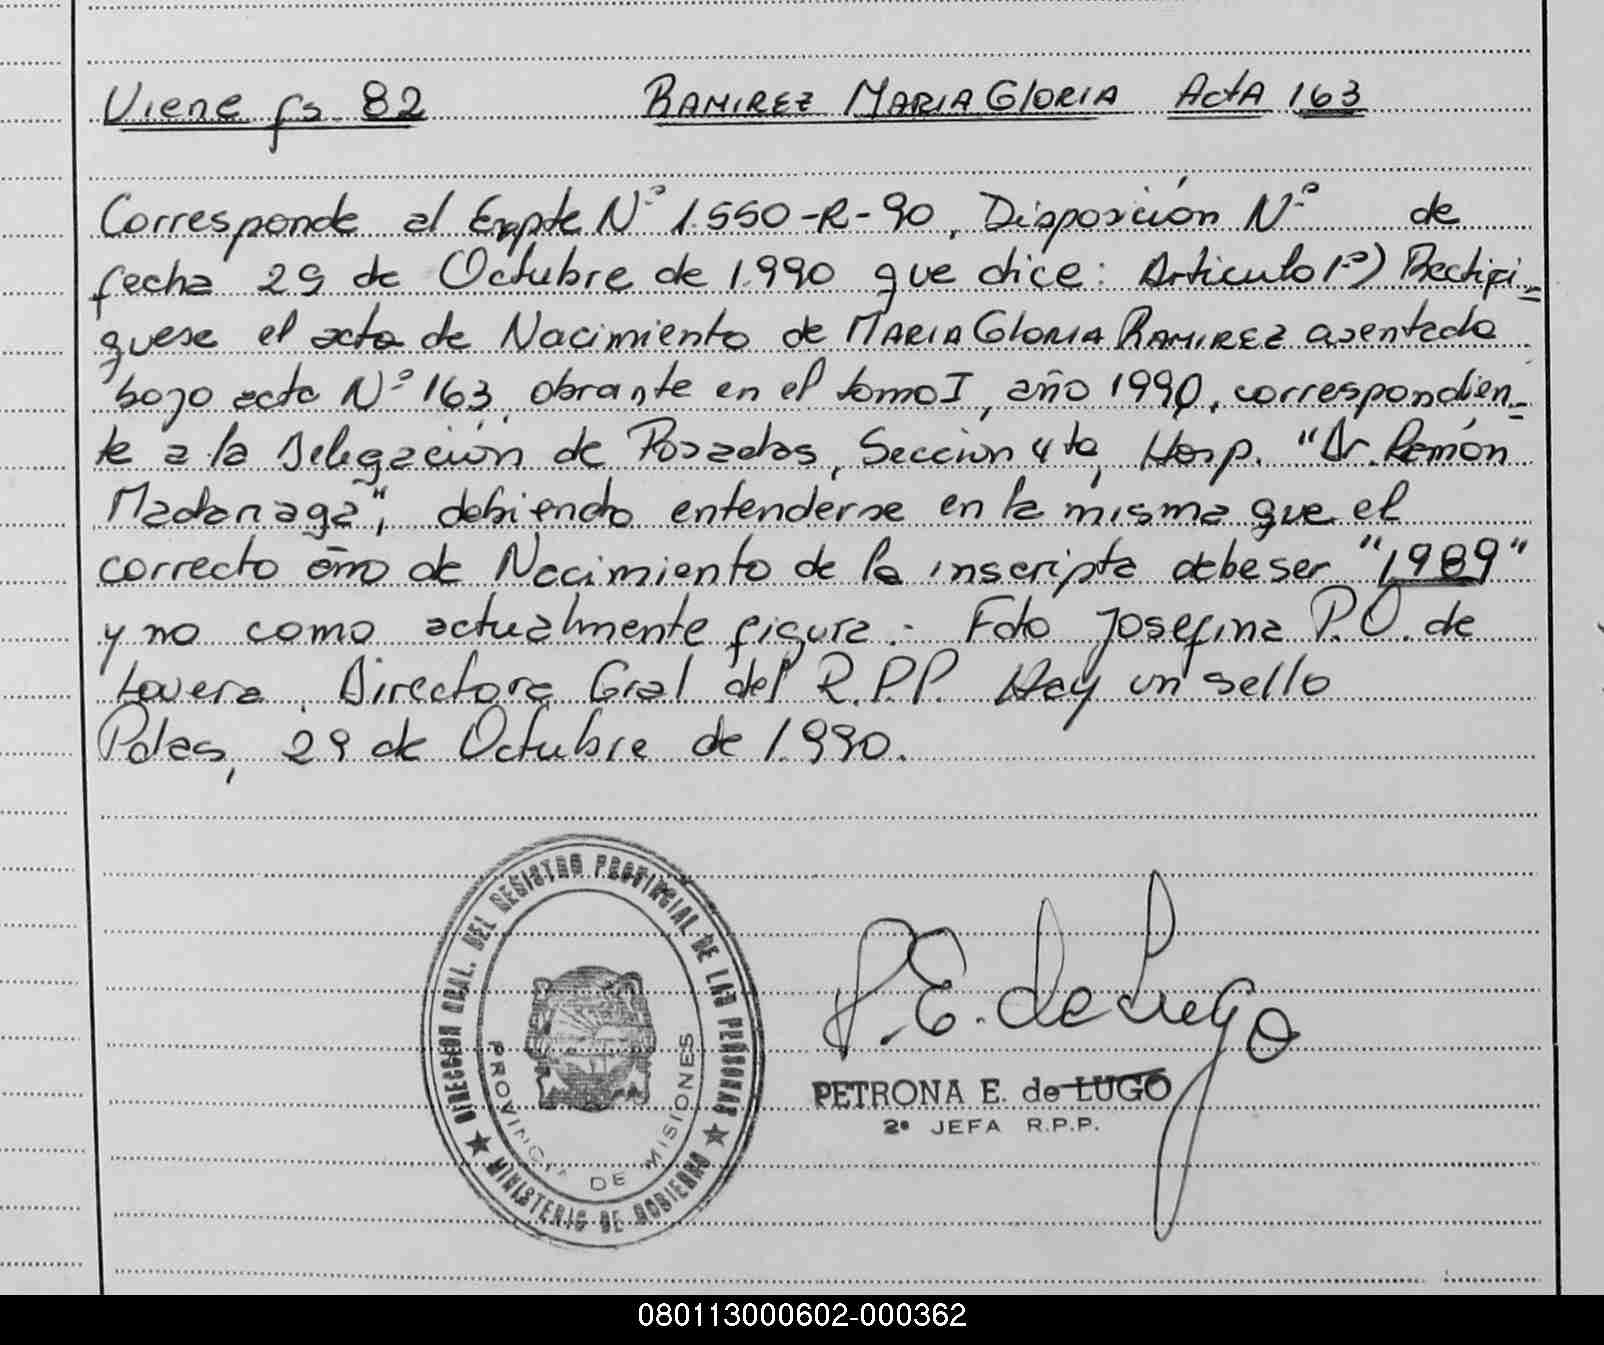 Viene fs. 82 RAMIREZ MARIA GLORIA ACTA 163
Corresponde al Expte Nº 1.550-R-90, Disposición Nº de
fecha 29 de Octubre de 1.990 que dice: Articulo 1º) Rectifi-
quese el acta de Nacimiento de MARIA GLORIA RAMIREZ asentada
bajo acta Nº 163, obrante en el tomo I, año 1990, correspondien-
te a la Delegación de Posadas, Seccion 4ta, Hosp. "Dr. Ramón
Madariaga", debiendo entenderse en la misma que el
correcto año de Nacimiento de la inscripta debe ser "1989"
y no como actualmente figura.- Fdo Josefina P.O. de
Lovera. Directora Gral del R.P.P. Hay un sello
Pdas, 29 de Octubre de 1.990.
DIRECCION GRAL. DEL REGISTRO PROVINCIAL DE LAS PERSONAS
★ MINISTERIO DE GOBIERNO ★
PROVINCIA DE MISIONES
P.E. de Lugo
PETRONA E. de LUGO
2º JEFA R.P.P.
080113000602-000362